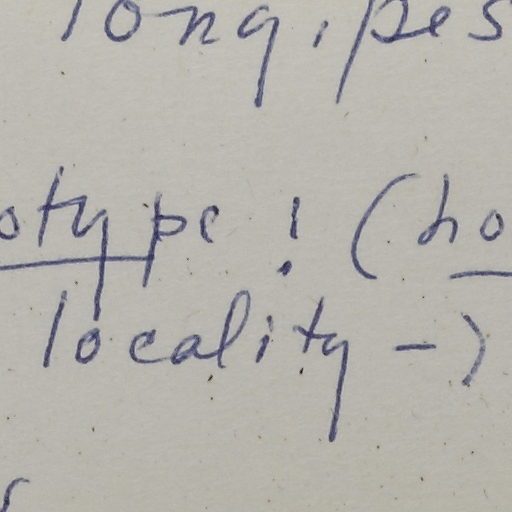 longipes
otype! (ho
locality -)